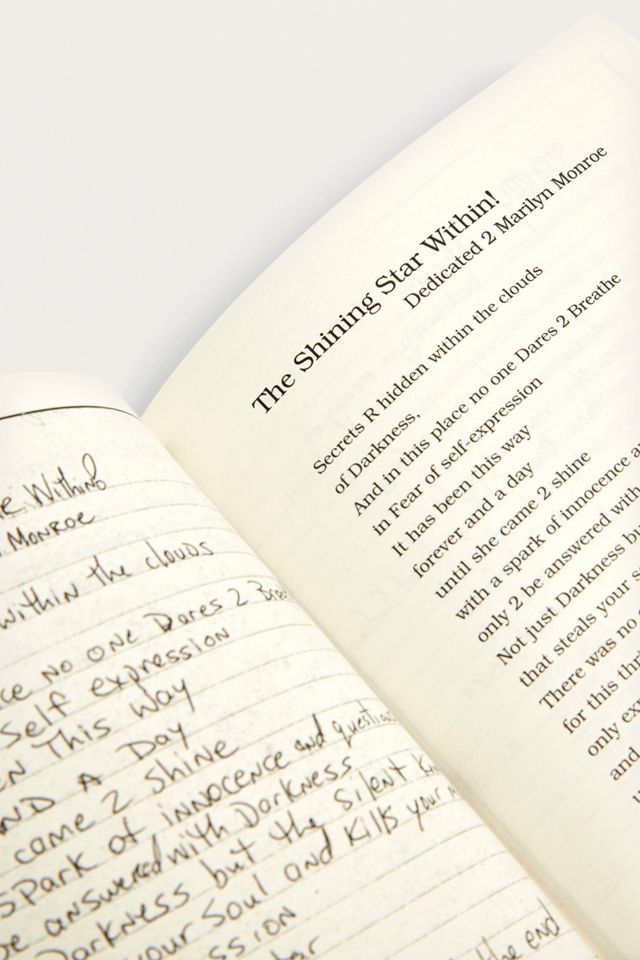 Within
Monroe
within the clouds
no one Dares 2
Self expression
This way
and a Day
came 2 shine
spark of innocence and
answered with Darkness
Darkness but the silent
your soul and kills your
the end
The Shining Star Within!
Dedicated 2 Marilyn Monroe
Secrets R hidden within the clouds
of Darkness,
And in this place no one Dares 2 Breathe
in Fear of self-expression
It has been this way
forever and a day
until she came 2 shine
with a spark of innocence
only 2 be answered with
Not just Darkness
that steals your
There was no
for this
only
and